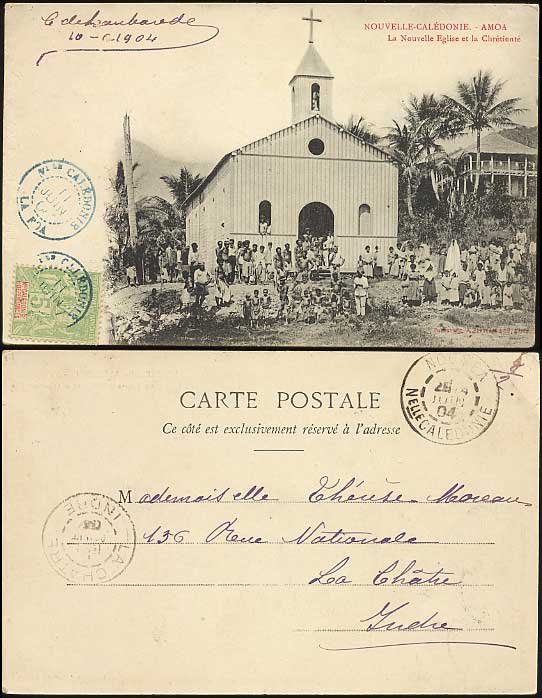 10-6-1904
NOUVELLE-CALÉDONIE. - AMOA
La Nouvelle Eglise et la Chrétienté
Nlle CALÉDONIE
11
JUIN
CARTE POSTALE
Ce côté est exclusivement réservé à l'adresse
NOUMEA
JUIN
04
Nelle CALEDONIE
Mademoiselle Thérèse Moreau
136 Rue Nationale
La Châtre
Indre
LA CHATRE
INDRE